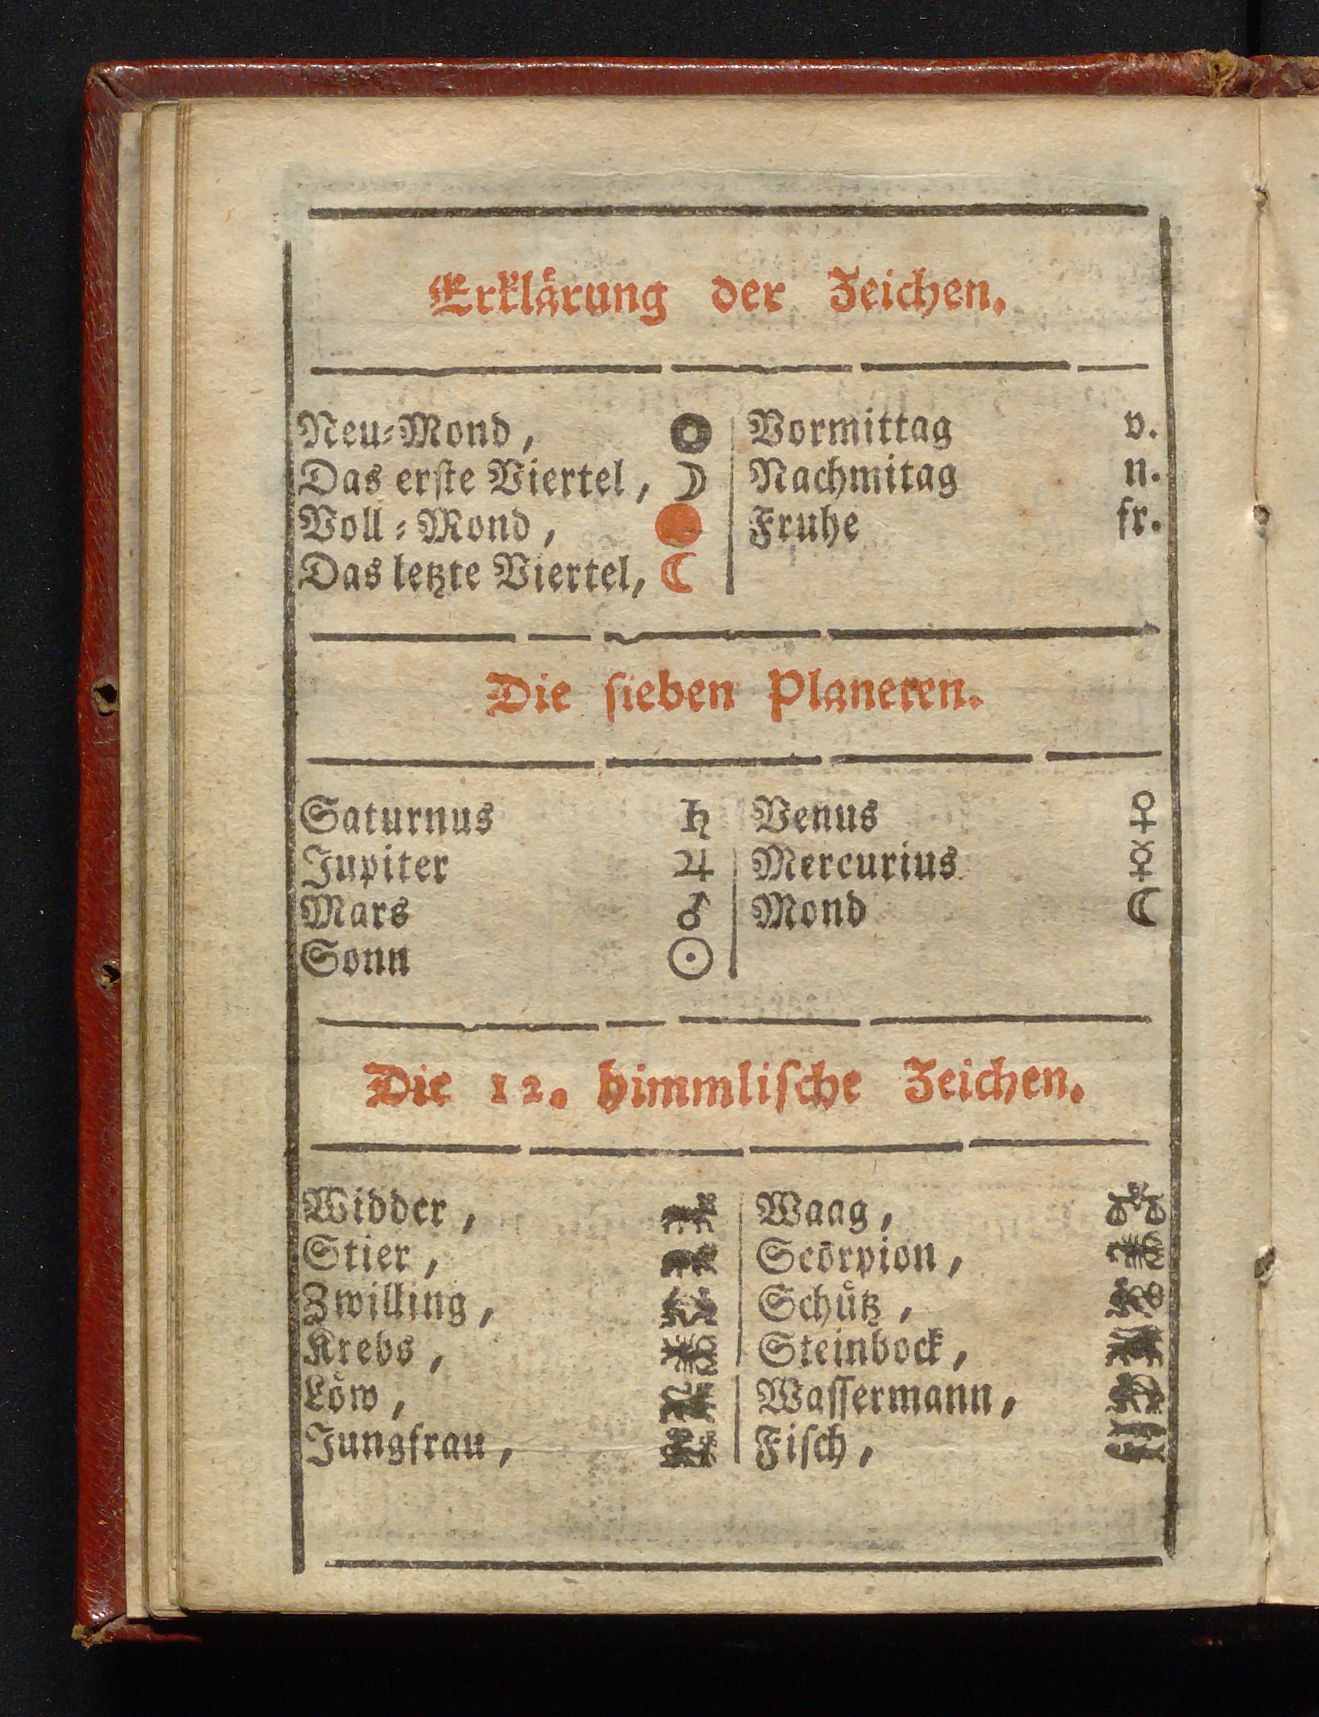 Erklärung der Zeichen.
Neu-Mond, 
Das erste Viertel, ☽
Voll-Mond, 
Das letzte Viertel, ☾
Vormittag v.
Nachmitag n.
Fruhe fr.
Die sieben Planeren.
Saturnus ♄
Jupiter ♃
Mars ♂
Sonn ☉
Venus ♀
Mercurius ☿
Mond ☾
Die 12. himmlische Zeichen.
Widder,
Stier,
Zwilling,
Krebs,
Löw,
Jungfrau,
Waag,
Scörpion,
Schütz,
Steinbock,
Wassermann,
Fisch,